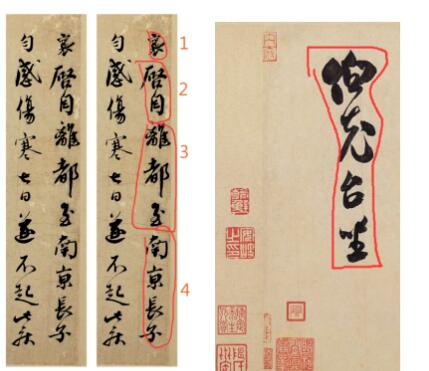 襄啓自離都至南京長子
匀感傷寒七日遂不起此疾
襄啓自離都至南京長子
匀感傷寒七日遂不起此疾
1
2
3
4
伯充台坐